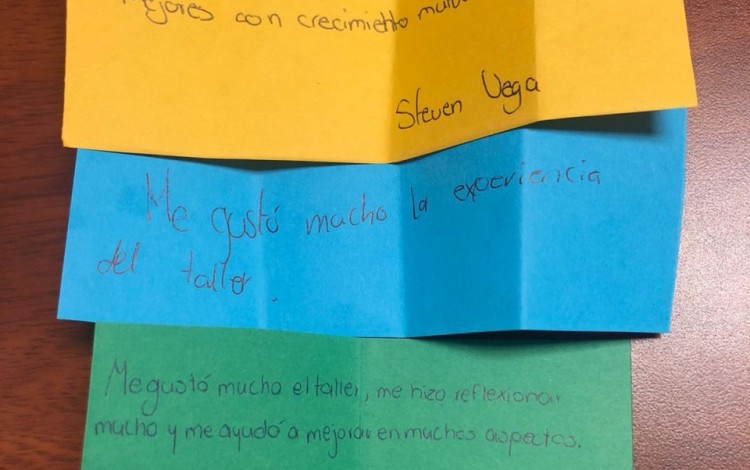 mejores con crecimiento
Steven Vega
Me gustó mucho la experiencia
del taller.
Me gustó mucho el taller, me hizo reflexionar
mucho y me ayudó a mejorar en muchos aspectos.